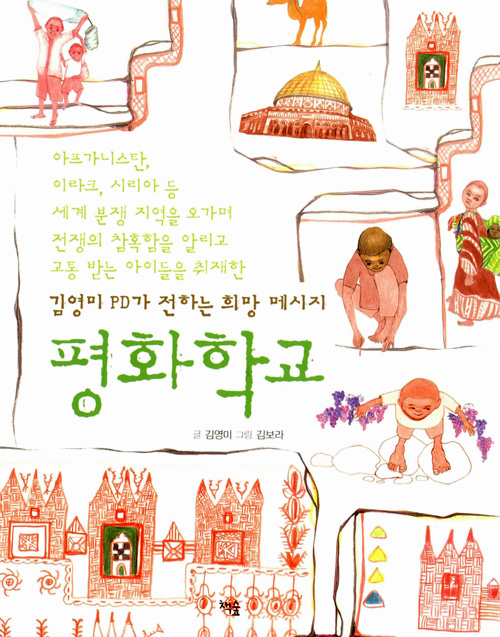 아프가니스탄,
이라크, 시리아 등
세계 분쟁 지역을 오가며
전쟁의 참혹함을 알리고
고통 받는 아이들을 취재한
김영미 PD가 전하는 희망 메시지
평화학교
글 김영미 그림 김보라
책숲